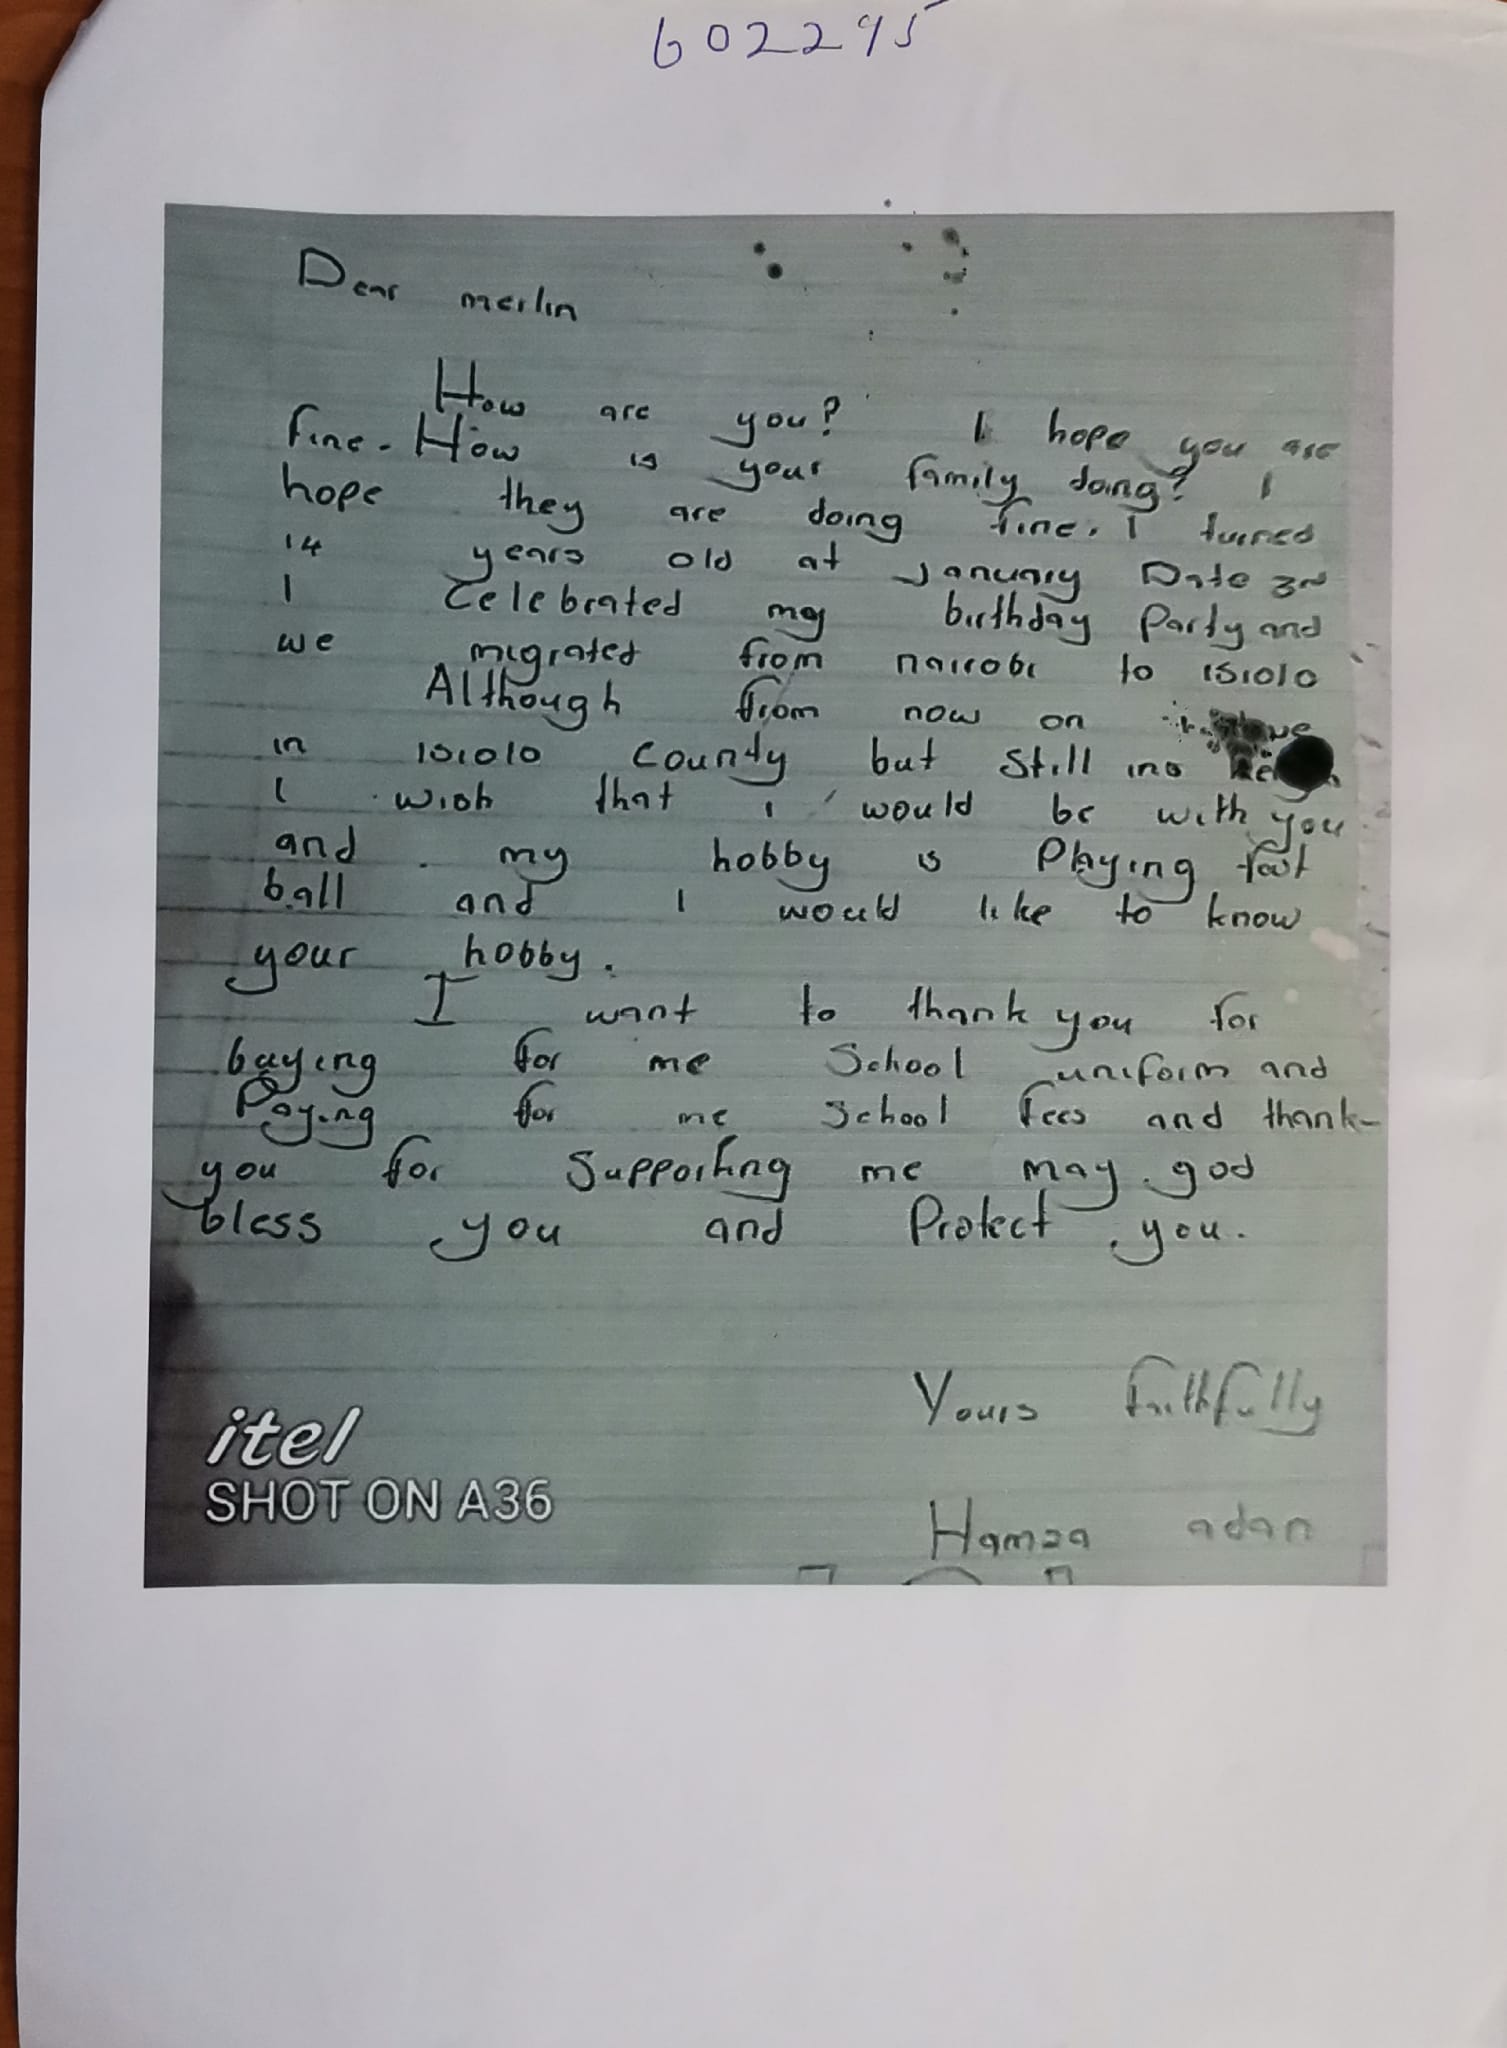 602295
Dear merlin
How are you? I hope you are
fine. How is your family doing? I
hope they are doing fine. I turned
14 years old at January Date 3rd
I Celebrated my birthday Party and
we migrated from nairobi to isiolo
Although from now on
in isiolo County but still ino
I wish that i would be with you
and my hobby is Playing foot
ball and I would like to know
your hobby.
I want to thank you for
buying for me School uniform and
Paying for me School fees and thank-
you for Supporting me may god
bless you and Protect you.
Yours faithfully
Hamza adan
itel
SHOT ON A36